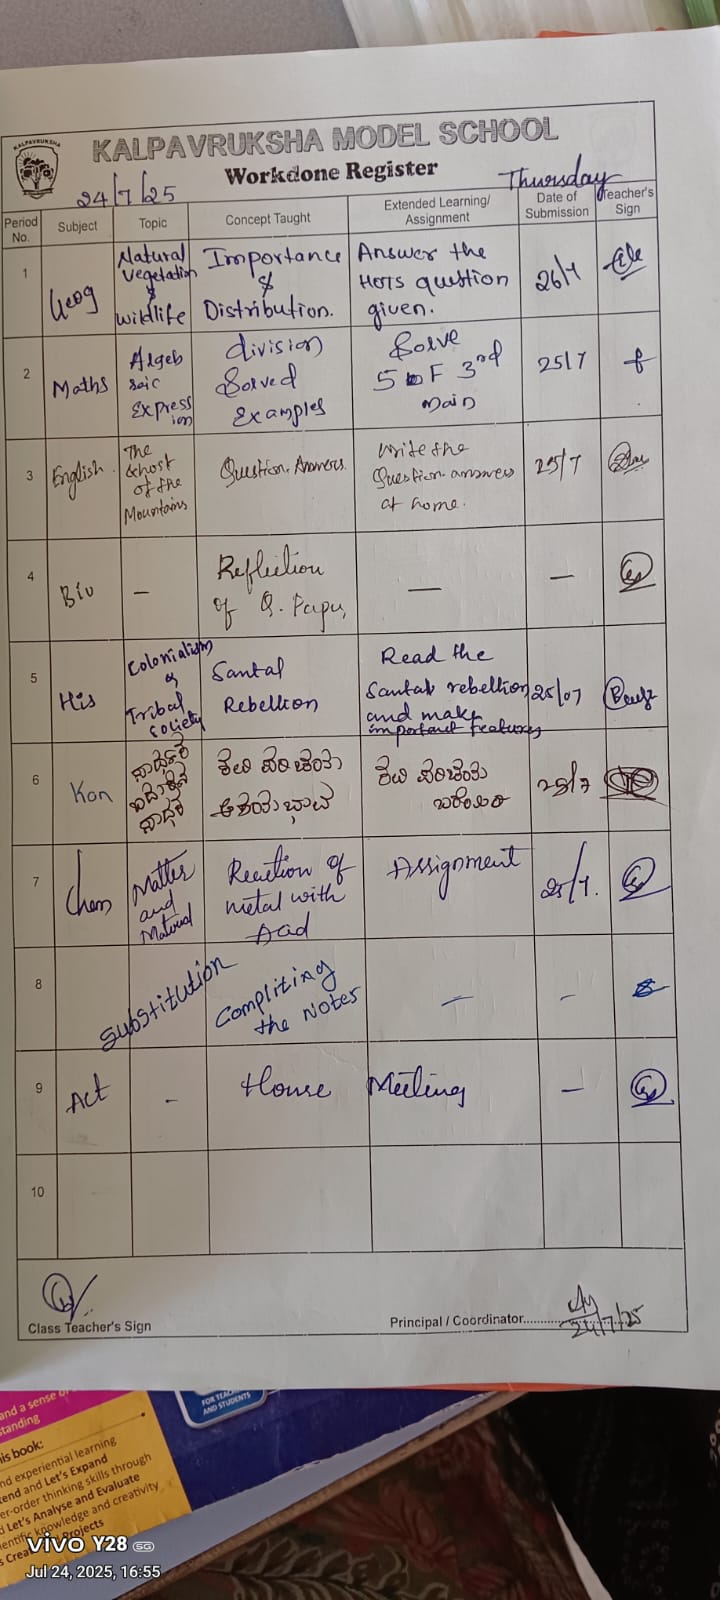 KALPAVRUKSHA
KALPAVRUKSHA MODEL SCHOOL
Workdone Register
24/7/25
Thursday
Period No.
Subject
Topic
Concept Taught
Extended Learning/ Assignment
Date of Submission
Teacher's Sign
1
Geog
Natural
Vegetation
&
Wildlife
Importance
&
Distribution.
Answer the
HOTS question
given.
26/7
2
Maths
Algeb
raic
Express
ion
division
Solved
Examples
Solve
5 F 3rd
main
25/7
3
English
The
Ghost
of the
Mountains
Question. Answers.
Write the
Question answers
at home.
25/7
4
Bio
–
Reflection
of Q. Paper
—
–
5
His
Colonialism
&
Tribal
Society
Santal
Rebellion
Read the
Santal rebellion
and make
important features
25/07
6
Kan
25/7
7
Chem
Matter
and
Material
Reaction of
metal with
Acid
Assignment
25/7.
8
Substitution
Compliting
the Notes
–
–
9
Act
–
House Meeting
–
10
Class Teacher's Sign
Principal / Coordinator............
24/7/25
FOR TEAC
AND STUDENTS
and a sense of
standing
his book:
nd experiential learning
tend and Let's Expand
er-order thinking skills through
d Let's Analyse and Evaluate
ientific knowledge and creativity
s Crea Projects
vivo Y28 5G
Jul 24, 2025, 16:55